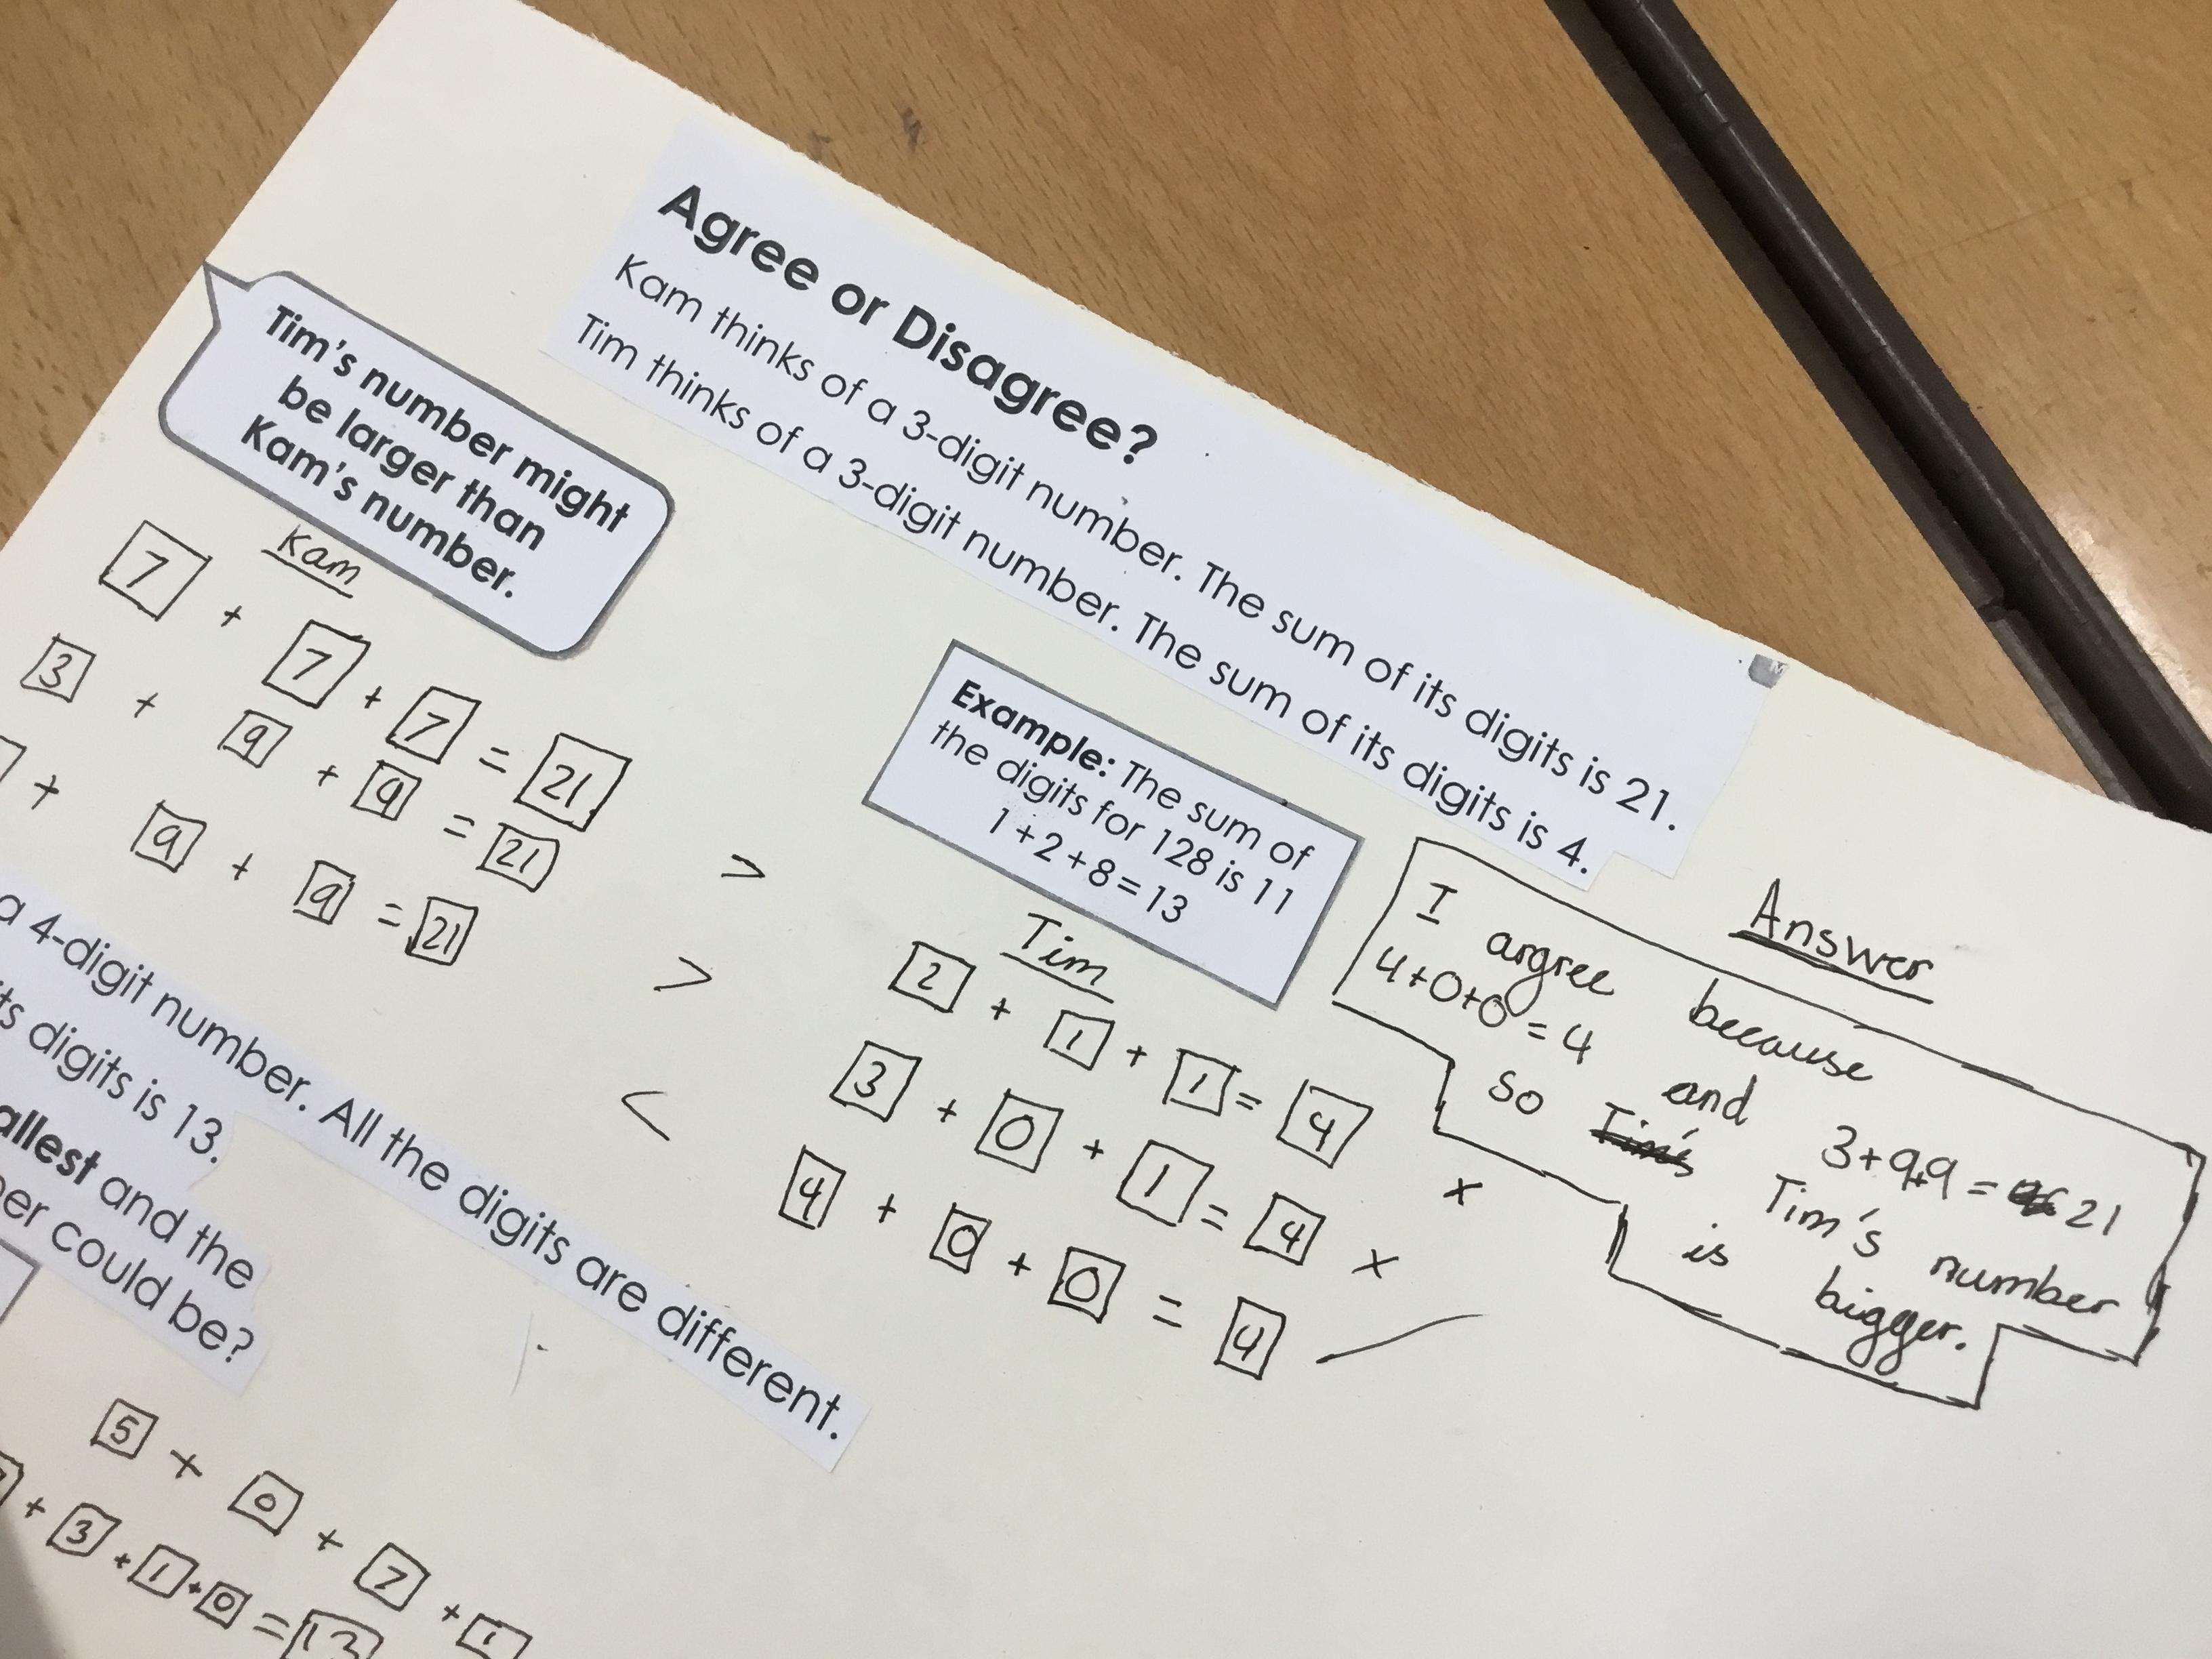 Agree or Disagree?
Kam thinks of a 3-digit number. The sum of its digits is 21.
Tim thinks of a 3-digit number. The sum of its digits is 4.
Tim's number might
be larger than
Kam's number.
Example: The sum of
the digits for 128 is 11
1 + 2 + 8 = 13
Kam
7 + 7 + 7 = 21
3 + 9 + 9 = 21
+ 9 + 9 = 21
>
>
<
Tim
2 + 1 + 1 = 4 x
3 + 0 + 1 = 4 x
4 + 0 + 0 = 4
Answer
I argree because
4+0+0=4 and 3+9+9= 21
so Tim's Tim's number
is bigger.
a 4-digit number. All the digits are different.
ts digits is 13.
allest and the
er could be?
5 + 0 + 7 + 1
+ 3 + 1 + 0 = 13